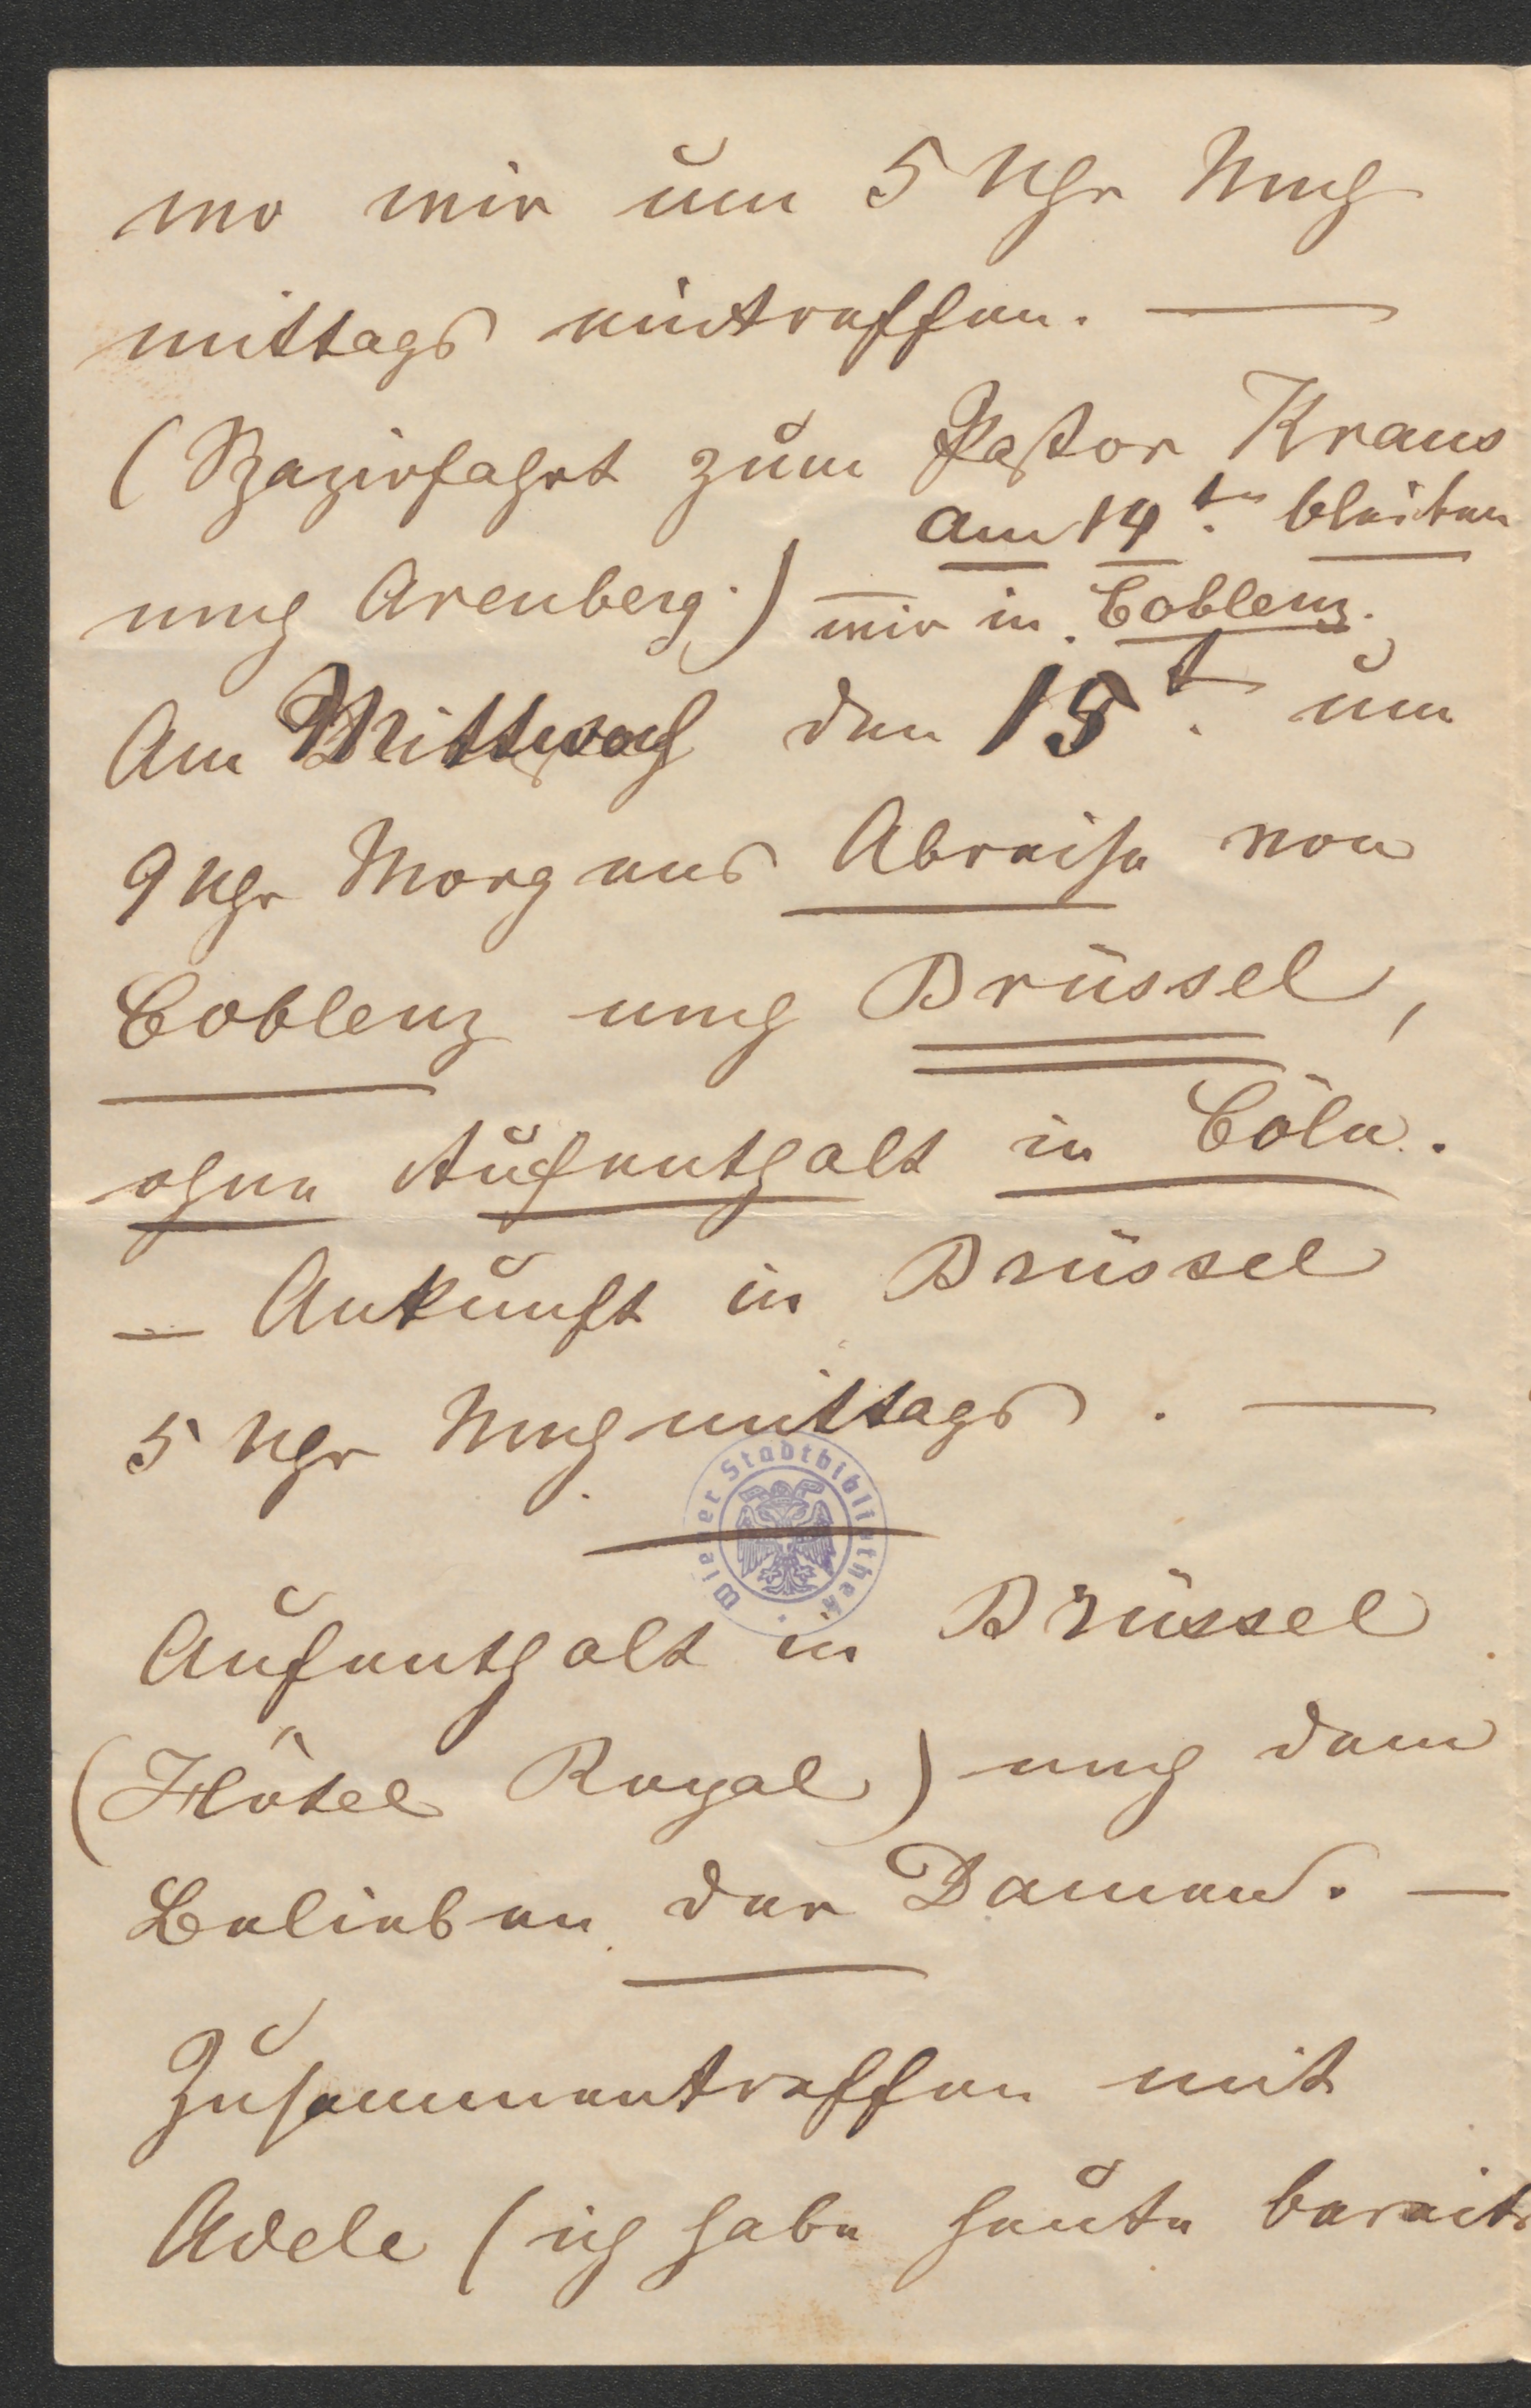 wo wir um 5 Uhr Nach
mittags eintreffen. —
(Spazirfahrt zum Pastor Kraus
nach Arenberg.) — am 14ten bleiben
wir in Coblenz.
Am Mittwoch den 15t. um
9 Uhr Morgens Abreise von
Coblenz nach Brüssel,
ohne Aufenthalt in Cöln.
— Ankunft in Brüssel
5 Uhr Nachmittags. —
Wiener Stadtbibliothek
Aufenthalt in Brüssel
(Hôtel Royal) nach dem
Belieben der Damen. —
Zusammentreffen mit
Adele (ich habe heute bereits